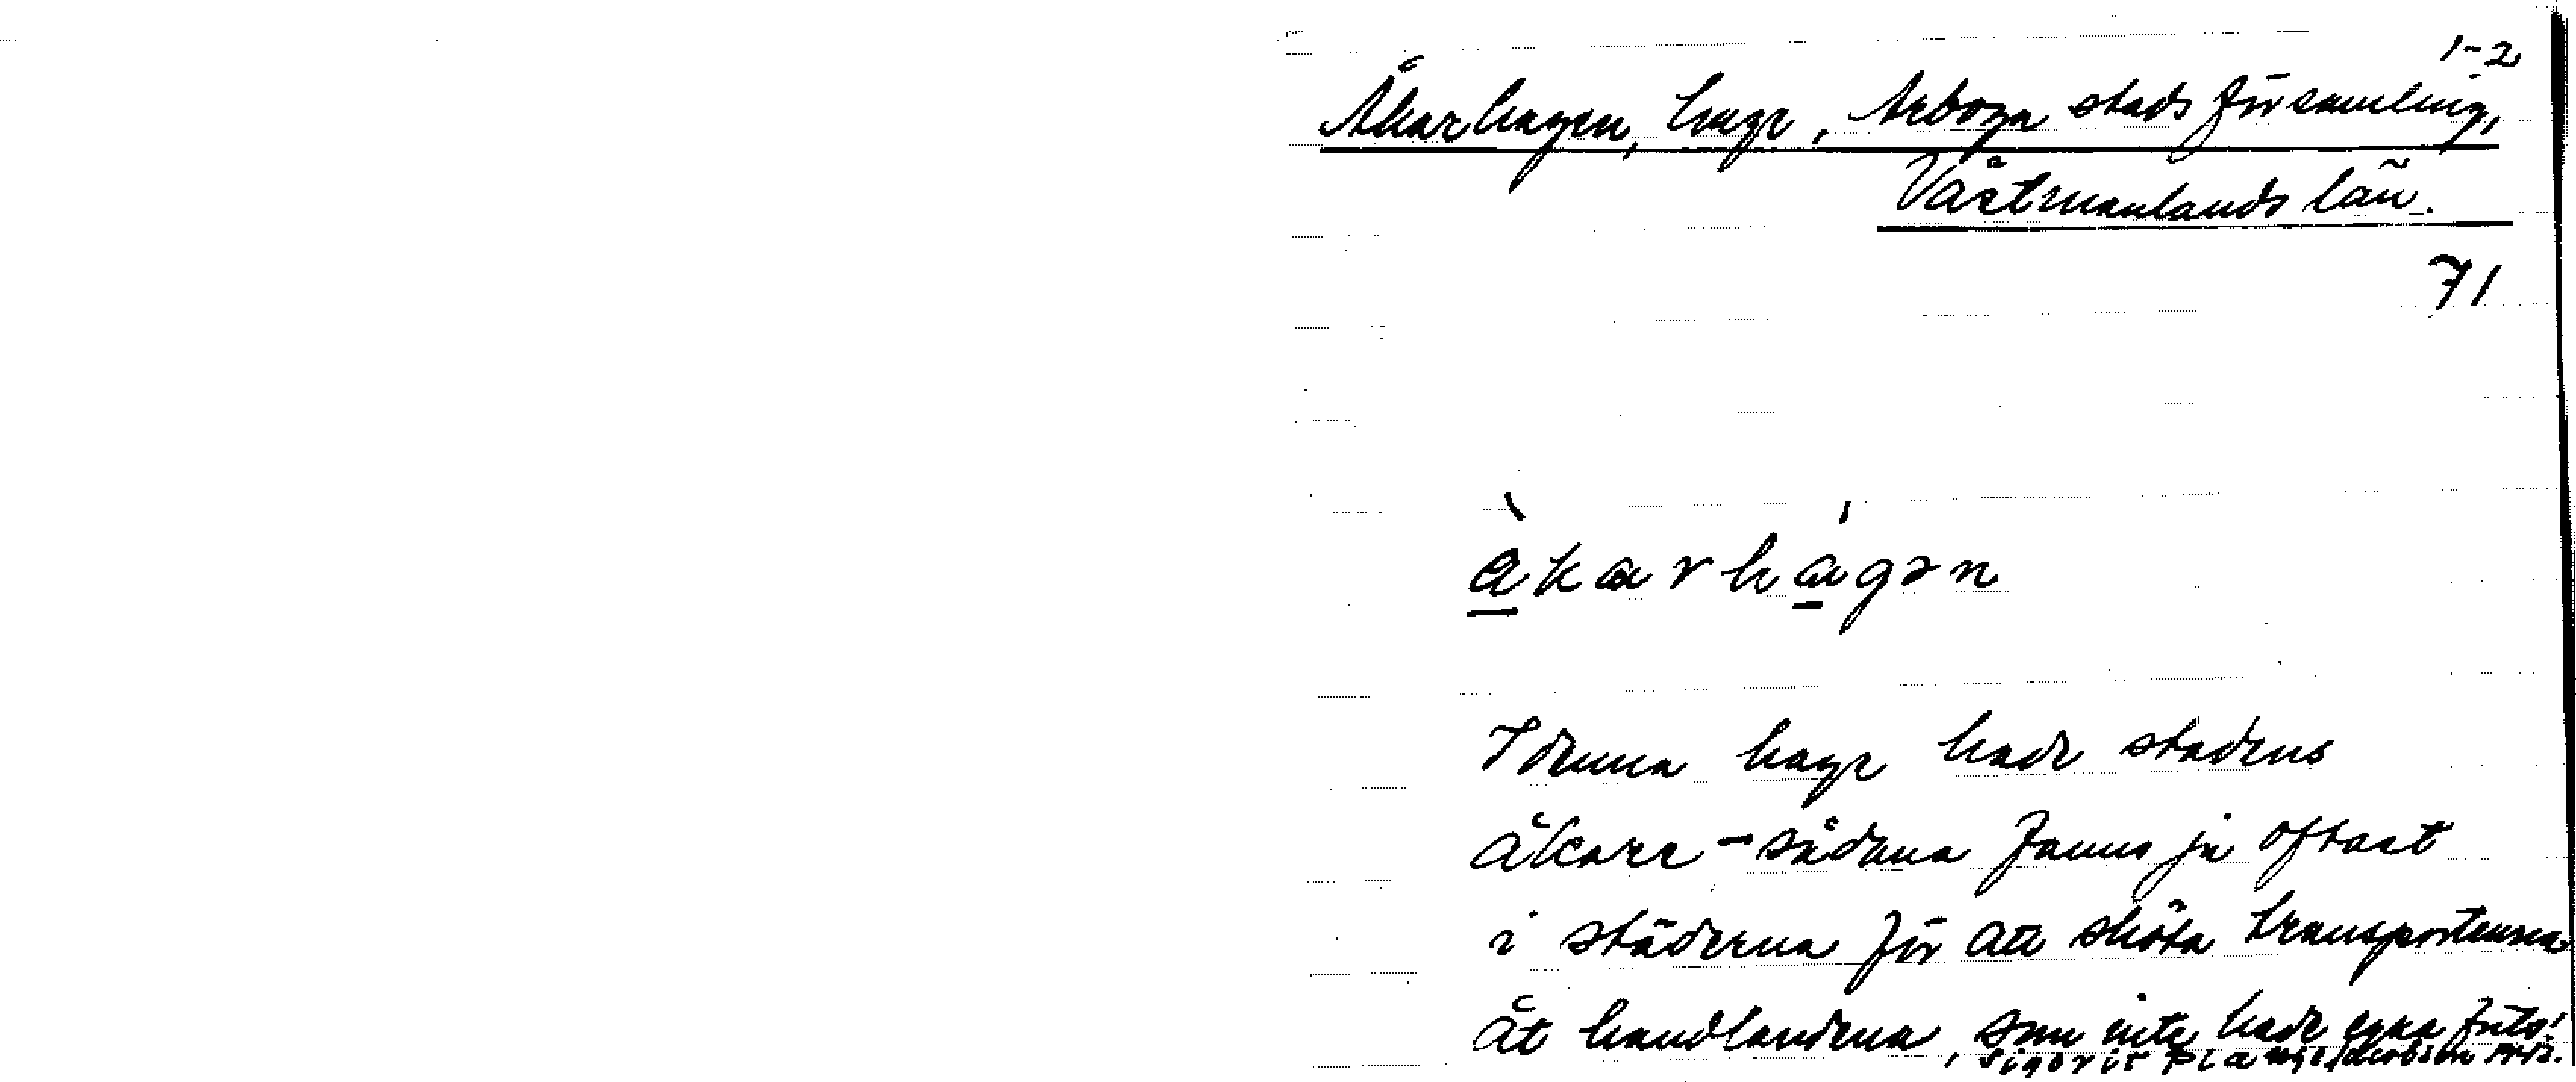 1-2
Åkarhagen, hage, Arboga stads församling,
Västmanlands län.
71
àkarhágən
I denna hage hade stadens
åkare - sådana fanns ju oftast
i städerna för att sköta transporterna
åt handlandena, som inte hade egna
Sigbrit Plænge Jacobson